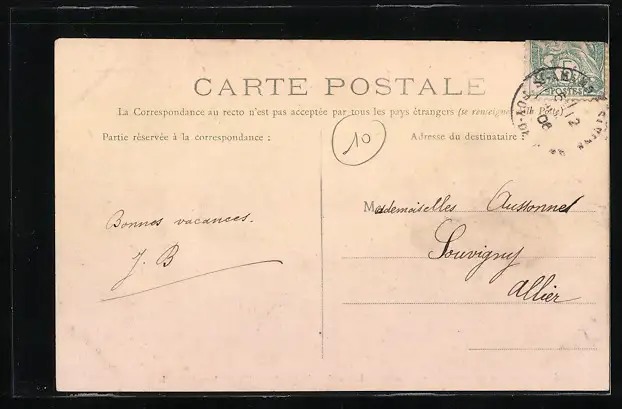 CARTE POSTALE
La Correspondance au recto n'est pas acceptée par tous les pays étrangers (se renseigner à la Poste)
Partie réservée à la correspondance :
10
Adresse du destinataire
POSTES
PUY-DE
06
Mesdemoiselles Aussonnel
Bonnes vacances.
Souvigny
J. B
Allier